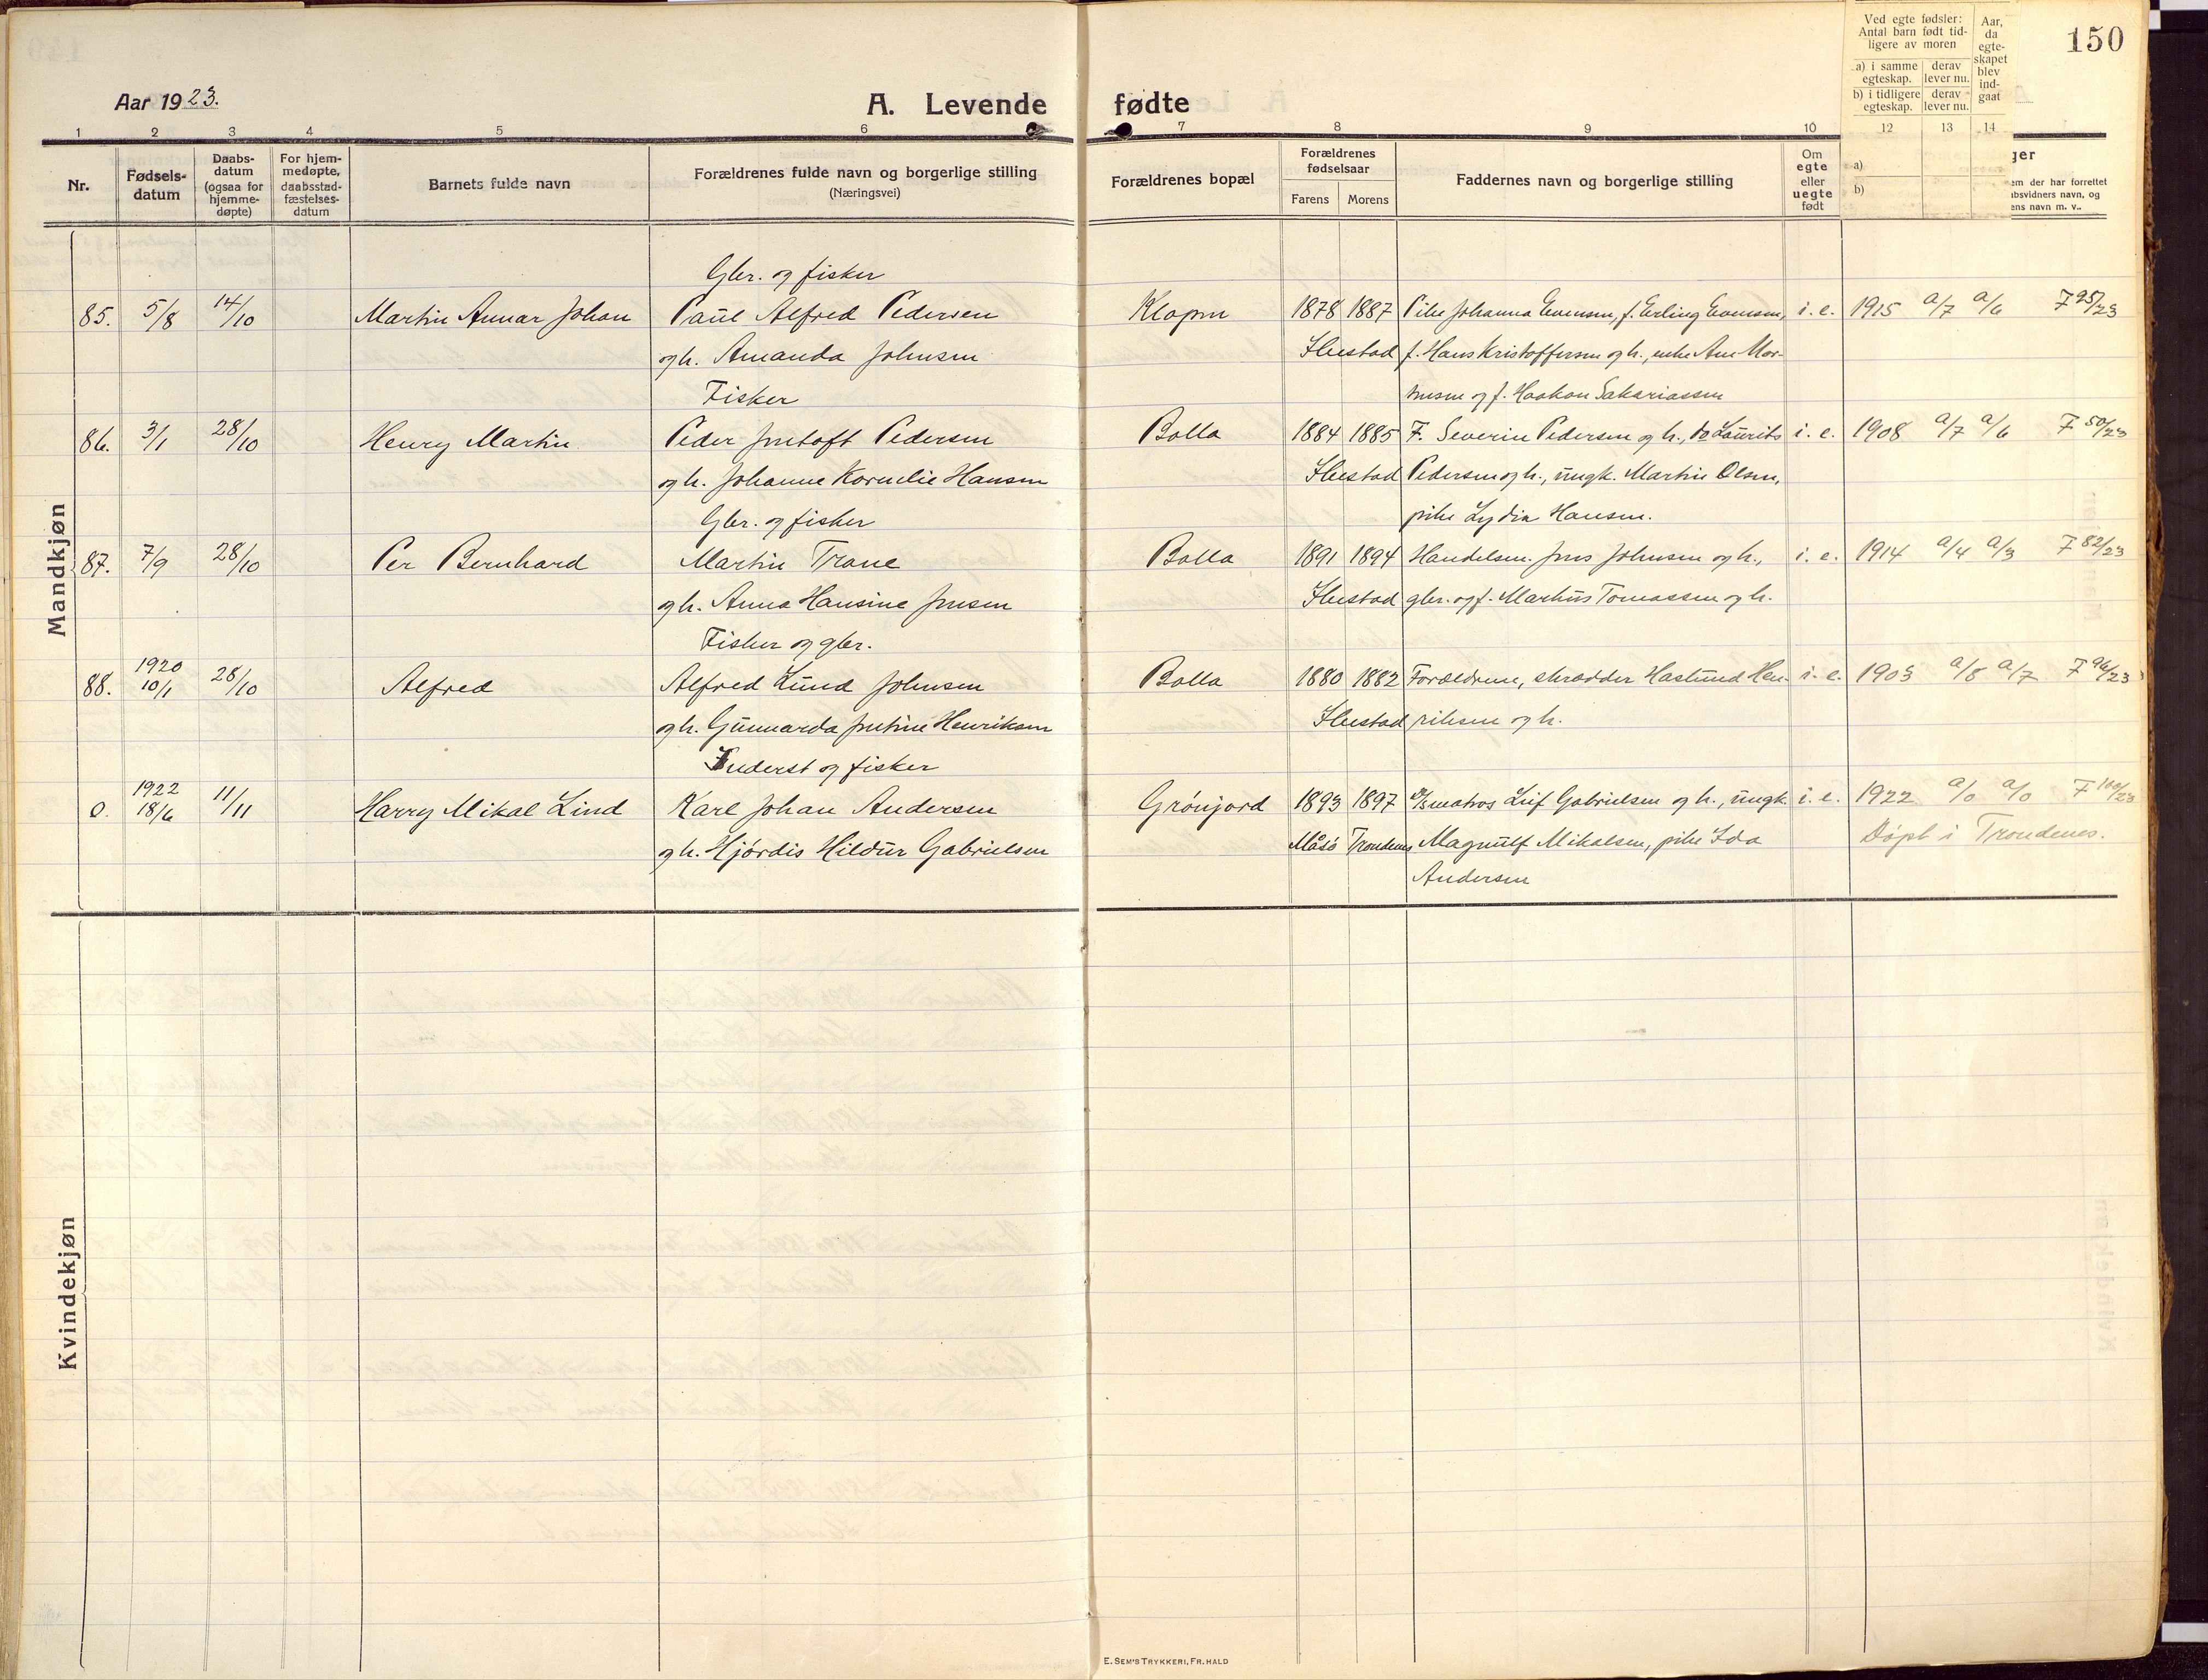 Aar 1923.
A. Levende fødte
150
Ved egte fødsler: Antal barn født tidligere av moren
a) i samme egteskap. derav lever nu.
b) i tidligere egteskap. derav lever nu.
Aar, da egteskapet blev indgaat
1 2 3 4 5 6 7 8 9 10 12 13 14
Nr.
Fødselsdatum
Daabsdatum (ogsaa for hjemmedøpte)
For hjemmedøpte, daabsstadfæstelsesdatum
Barnets fulde navn
Forældrenes fulde navn og borgerlige stilling (Næringsvei)
Forældrenes bopæl
Forældrenes fødselsaar
Farens Morens
Faddernes navn og borgerlige stilling
Om egte eller uegte født
a)
b)
ger
em der har forrettet
absvidners navn, og
ens navn m. v..
Mandkjøn
Gbr. og fisker
85. 5/8 14/10 Martin Annar Johan Paul Alfred Pedersen Klopen 1878 1887 Pike Johanna Evensen, f. Erling Evensen, i. e. 1915 a/7 a/6 F 95/23
og h. Amanda Johnsen Ibestad f. Hans Kristoffersen og h., enke Ane Mor-
Fisker tensen og f. Haakon Sakariassen
86. 3/1 28/10 Henry Martin Peder Jentoft Pedersen Bolla 1884 1885 F. Severin Pedersen og h., do Laurits i. e. 1908 a/7 a/6 F 50/23
og h. Johanne Kornelie Hansen Ibestad Pedersen og h., ungk. Martin Olsen,
Gbr. og fisker pike Lydia Hansen.
87. 7/9 28/10 Per Bernhard Martin Trane Bolla 1891 1894 Handelsm. Jens Johnsen og h., i. e. 1914 a/4 a/3 F 82/23
og h. Anna Hansine Jensen Ibestad gbr. og f. Markus Tomassen og h.
Fisker og gbr.
88. 1920 10/1 28/10 Alfred Alfred Lund Johnsen Bolla 1880 1882 Forældrene, skrædder Haslund Hen- i. e. 1903 a/8 a/7 F 96/23
og h. Gunnarda Jentine Henriksen Ibestad riksen og h.
Inderst og fisker
0. 1922 18/6 11/11 Harry Mikal Lind Karl Johan Andersen Grønjord 1893 1897 matros Leif Gabrielsen og h., ungk. i. e. 1922 a/0 a/0 F 100/23
og h. Hjørdis Hildur Gabrielsen Måsø Trondenes Magnulf Mikalsen, pike Ida Døpt i Trondenes.
Andersen
Kvindekjøn
E. SEM'S TRYKKERI, FR.HALD